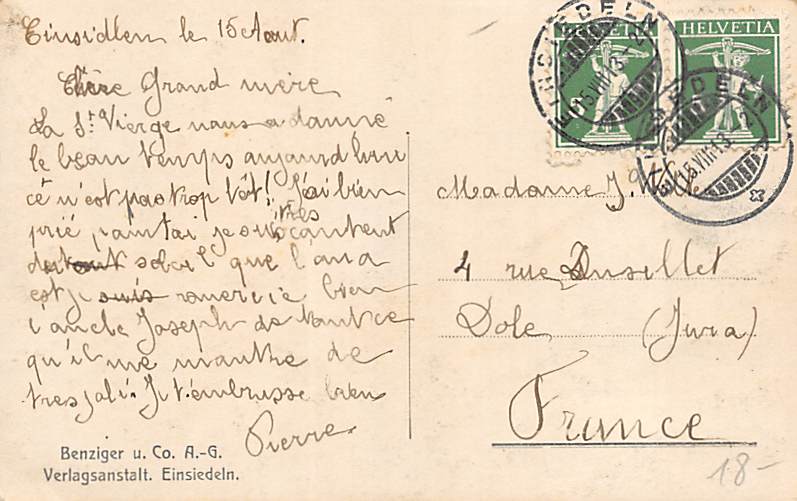 Einsidlen le 15 Aout.
Chère Grand mère
La St Vierge nous a donné
le beau temps aujourd hui
cé n'est pas trop tôt! J'ai bien
prié pour toi je suis très content
du tout soleil que l'on a
est je suis remercie bien
l'oncle Joseph de tout ce
qu'il me montre de
tres joli. Je t'embrasse bien
Pierre
Benziger u. Co. A.-G.
Verlagsanstalt. Einsiedeln.
HELVETIA
HELVETIA
EINSIEDELN
15.VIII.13
EINSIEDELN
15.VIII.13
Madame J.
4 rue Dusillet
Dole (Jura)
France
18-